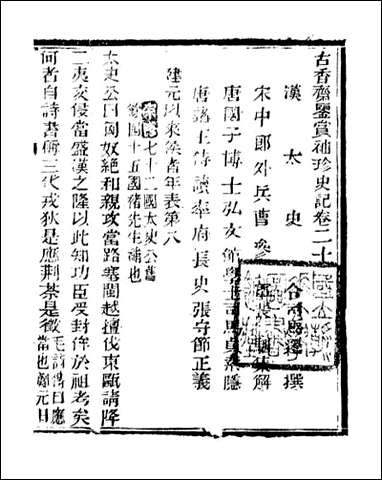 古香齋鑒賞袖珍史記卷二十
漢太史令司馬遷撰
宋中郎外兵曹參軍裴駰集解
唐國子博士弘文館學士司馬貞索隱
唐諸王侍讀率府長史張守節正義
建元以來侯者年表第八
索隱七十二國太史公舊
餘四十五國褚先生補也
太史公曰匈奴絕和親攻當路塞閩越擅伐東甌請降
二夷交侵當盛漢之隆以此知功臣受封侔於祖考矣
何者自詩書稱三代戎狄是應荊荼是徵
毛詩傳曰應
當也鄭元曰